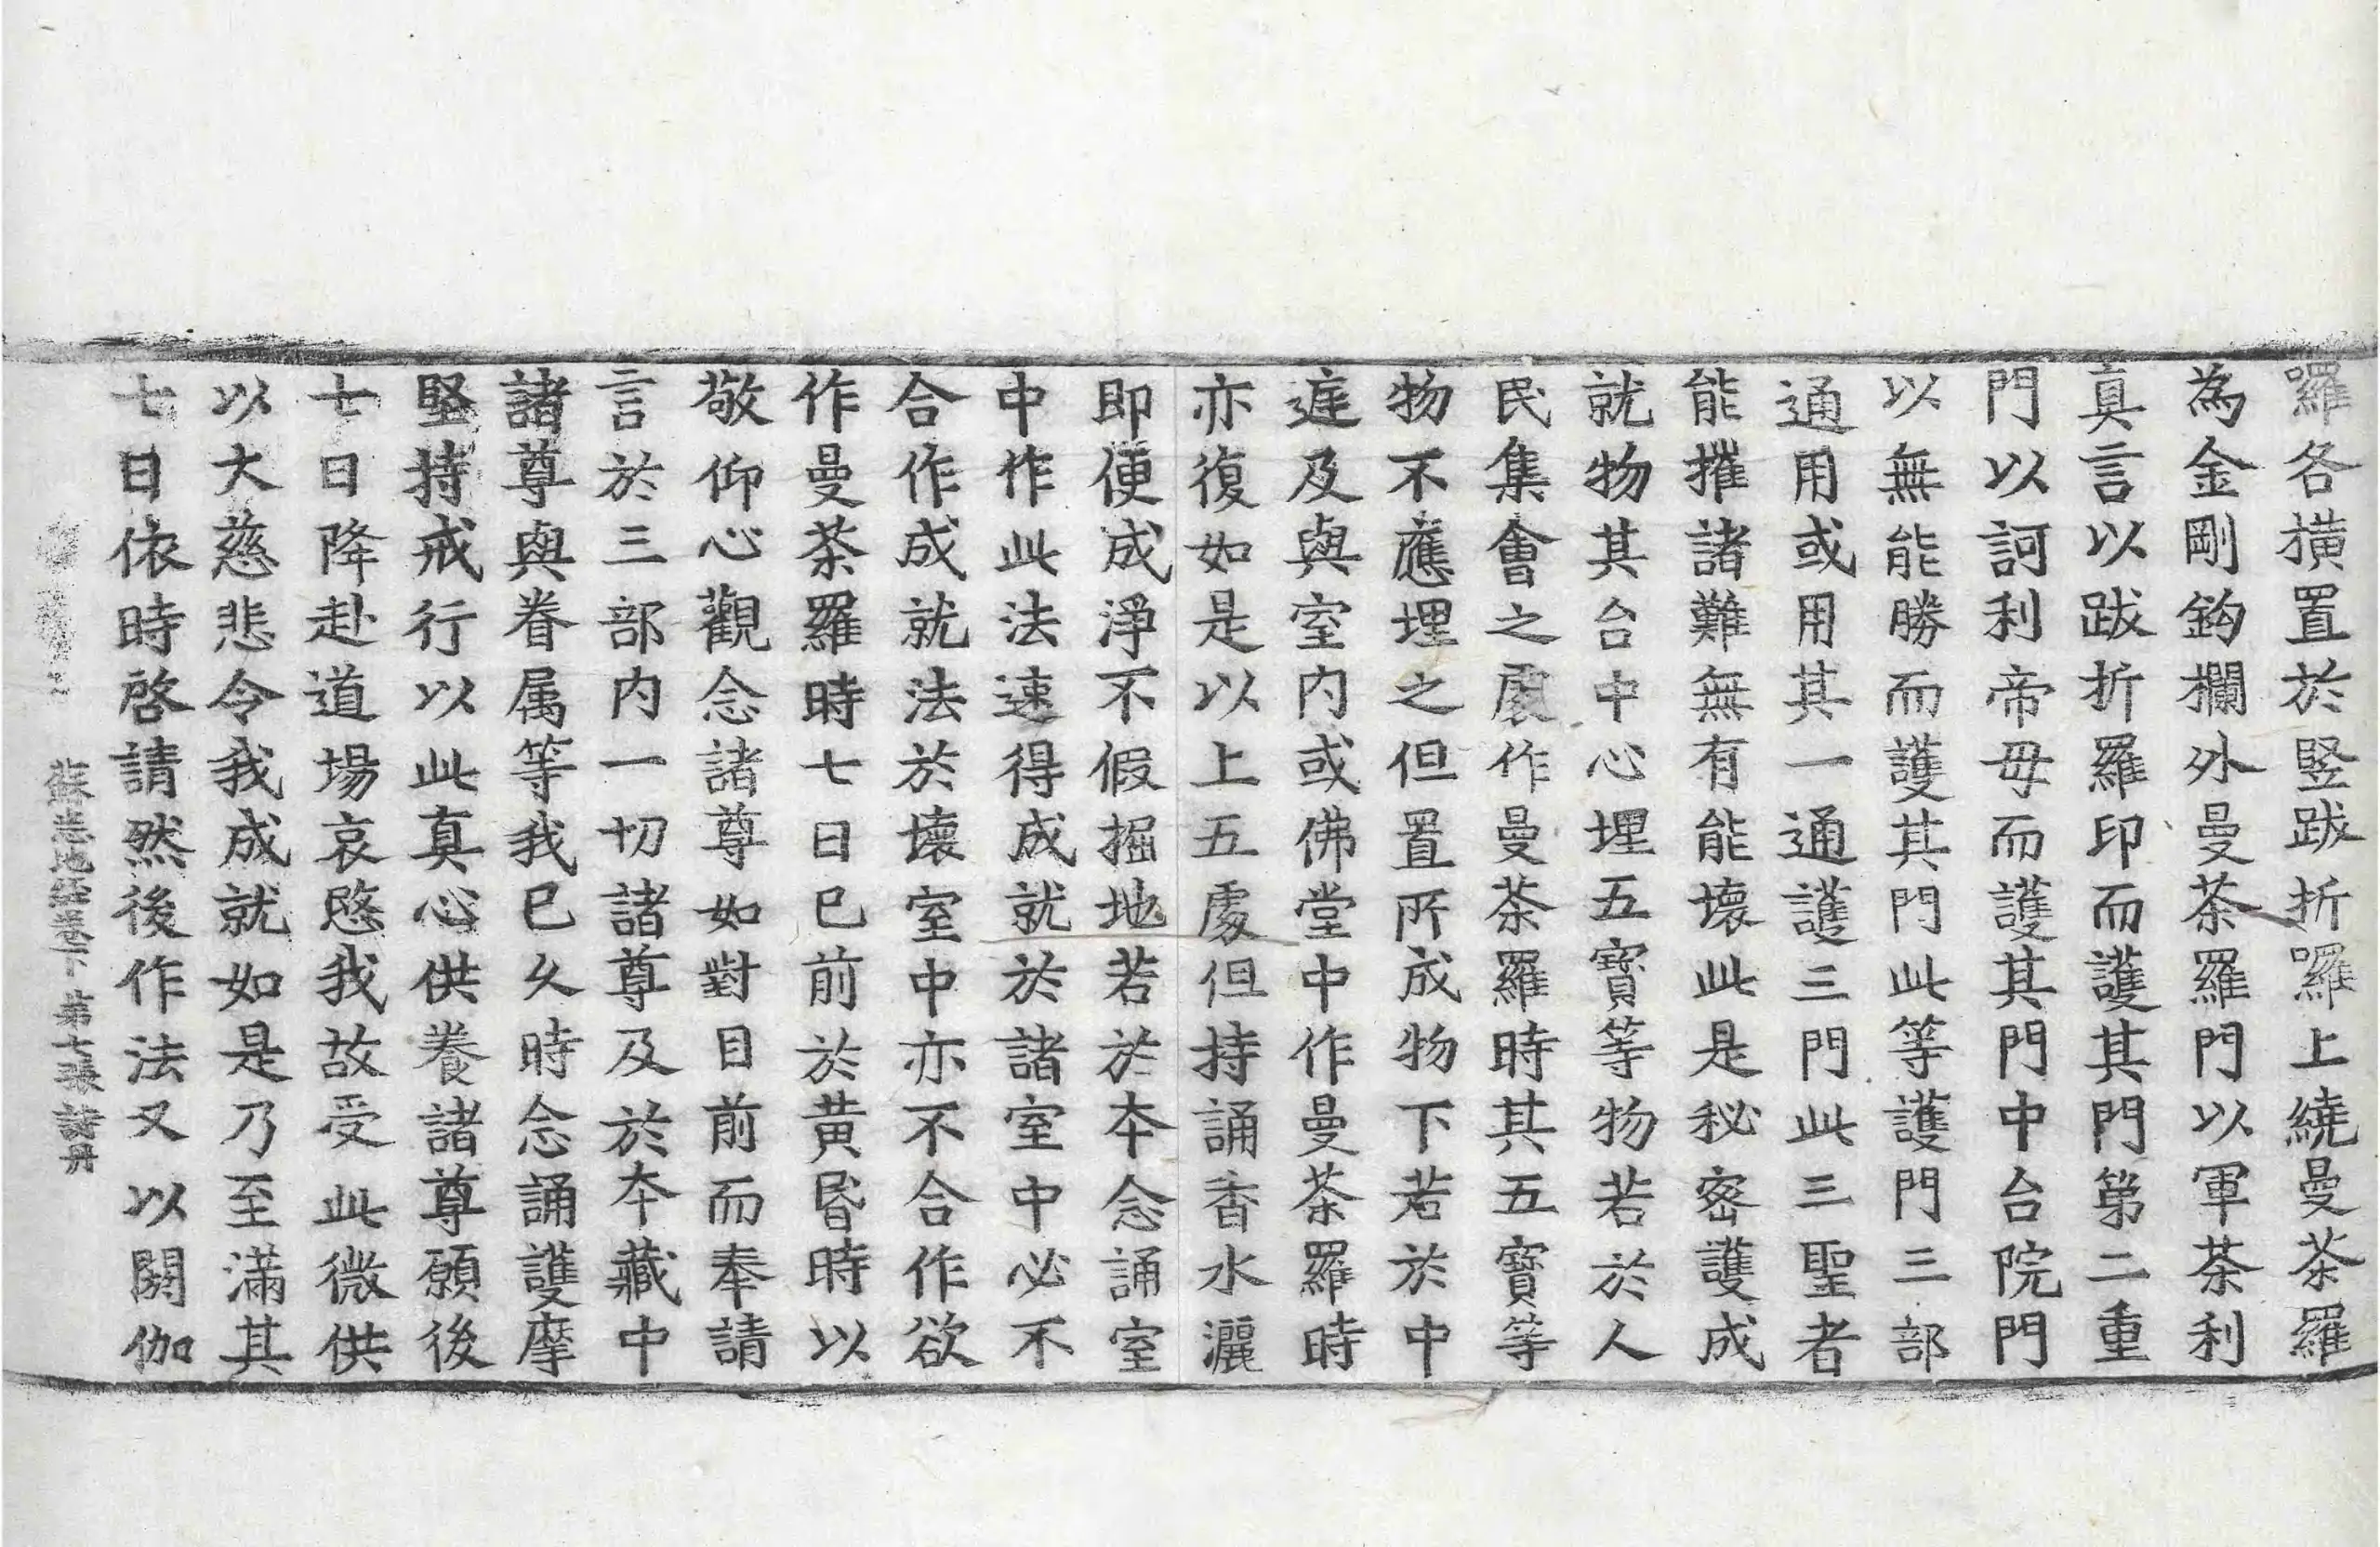 囉各撗置於竪跋折囉上繞曼茶羅
為金剛鈎欄外曼茶羅門以軍茶利
真言以跋折羅印而護其門第二重
門以訶利帝毋而護其門中台院門
以無能勝而護其門此等護門三部
通用或用其一通護三門此三聖者
能摧諸難無有能壞此是秘密護成
就物其台中心埋五寶等物若於人
民集會之處作曼茶羅時其五寶等
物不應埋之但置所成物下若於中
𨓍及與室内或佛堂中作曼茶羅時
亦復如是以上五處但持誦香水灑
即便成淨不假掘地若於夲念誦室
中作此法速得成就於諸室中必不
合作成就法於壞室中亦不合作欲
作曼茶羅時七日巳前於黄昬時以
敬仰心觀念諸尊如對目前而奉請
言於三部内一切諸尊及於夲藏中
諸尊與眷属等我巳久時念誦護摩
堅持戒行以此真心供養諸尊願後
七日降赴道場哀愍我故受此微供
以大慈悲令我成就如是乃至滿其
七日依時啓請然後作法又以閼伽
蘇悉地經卷下 第七張 諸丹